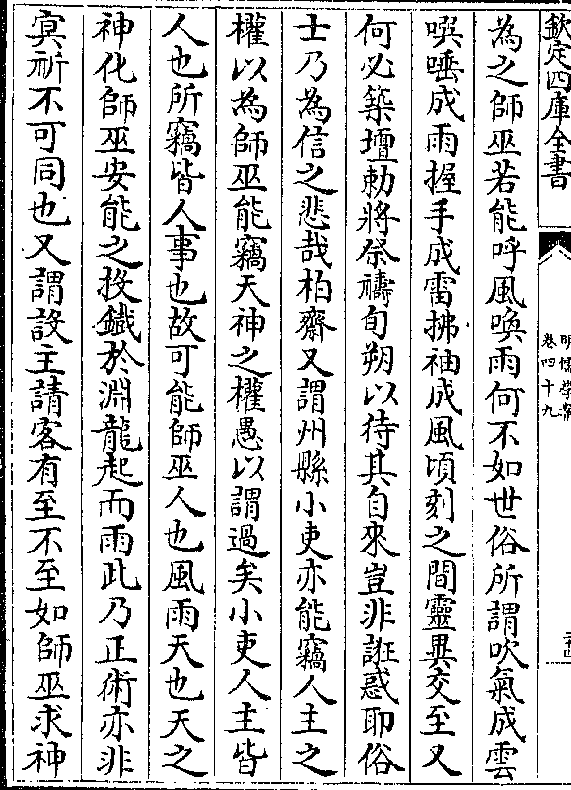 欽定四庫全書
明儒學案
卷四十九
為之師巫若能呼風喚雨何不如世俗所謂吹氣成雲
噀唾成雨握手成雷拂袖成風頃刻之間靈異交至又
何必築壇勅將祭禱旬朔以待其自來豈非誑惑耶俗
士乃為信之悲哉柏齋又謂州縣小吏亦能竊人主之
權以為師巫能竊天神之權愚以謂過矣小吏人主皆
人也所竊皆人事也故可能師巫人也風雨天也天之
神化師巫安能之投鐵於淵龍起而雨此乃正術亦非
冥祈不可同也又謂設主請客有至不至如師巫求神